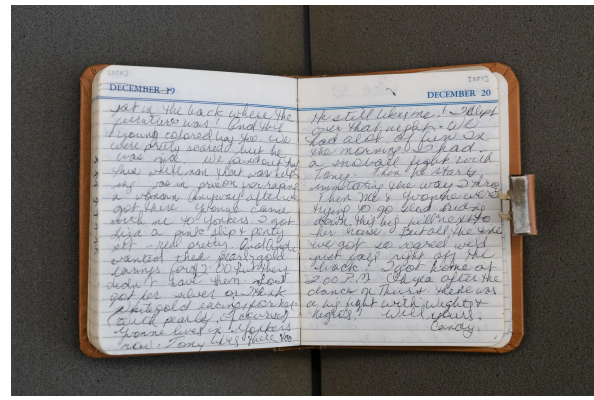 DECEMBER 19
sat in the back where the
furniture was! And this
young colored guy too. We
were pretty scared but he
was nice. We found out that
this white man that was help-
ing was in prison for raping
a woman. Anyway after we
got there Yvonne came
with me to Yonkers. I got
Lisa a pink slip & panty
set - real pretty. And Linda
wanted these pearl & gold
earrings for $2.00 but they
didn't have them so I
got her silver or I think
white gold earrings for
(with pearls, of course).
Yvonne lives in Yonkers
now. Tony was there too
DECEMBER 20
He still likes me! I slept
over that night. We
had a lot of fun. In
the morning I had
a snowball fight with
Tony. Then he starts
immitating the way I throw
Then me & Yvonne were
trying to go sled riding
down this big hill next to
her house. But all the time
we got so scared we'd
just fall right off the
back! I got home at
2:00 P.M. Oh yea after the
dance on Thurs. there was
a big fight with whites &
negroes! Well yours,
Candy.